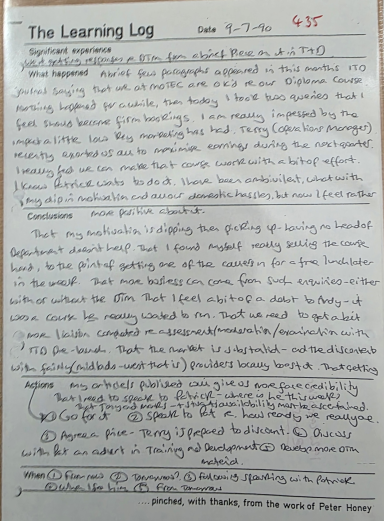 The Learning Log Date 9-7-90 435
Significant experience
What getting responses re DTM from a brief piece on it in T+D
What happened A brief few paragraphs appeared in this months ITD
journal saying that we at MOTEC are o.k.'d re our Diploma Course
Nothing happened for a while, then today I took two queries that I
feel should become firm bookings. I am really impressed by the
impact a little low key marketing has had. Terry (Operations Manager)
recently exhorted us all to maximise earnings during the next quarter.
I really feel we can make that course work with a bit of effort.
I know Patrick wants to do it. I have been ambivilent, what with
my dip in motivation and all our domestic hassles, but now I feel rather
Conclusions more positive about it.
That my motivation is dipping then picking up - having no head of
Department doesn't help. That I found myself really selling the course
hard, to the point of getting one of the callers in for a free lunch later
in the week. That more business can come from such enquiries - either
with or without the DTM That I feel a bit of a debt to Andy - it
was a course he really wanted to run. That we need to get a bit
more liaison completed re assessment/moderation/examination with
ITD pre-launch. That the market is substantial - and the discontent
with (midlands-west that is) providers locally boosts it. That getting
Actions my articles published will give us more face credibility
That I need to speak to Patrick - where is he this week?
That Tony and marks availability must be ascertained.
① Go for it ② Speak to Pat re how ready we really are.
③ Agree a price - Terry is prepared to discount. ④ Discuss
with Pat an advert in Training and Development ⑤ Develop more DTM
material.
When ① From now ② Tomorrow? ③ Following speaking with Patrick
④ When I see him ⑤ From Tomorrow
....pinched, with thanks, from the work of Peter Honey